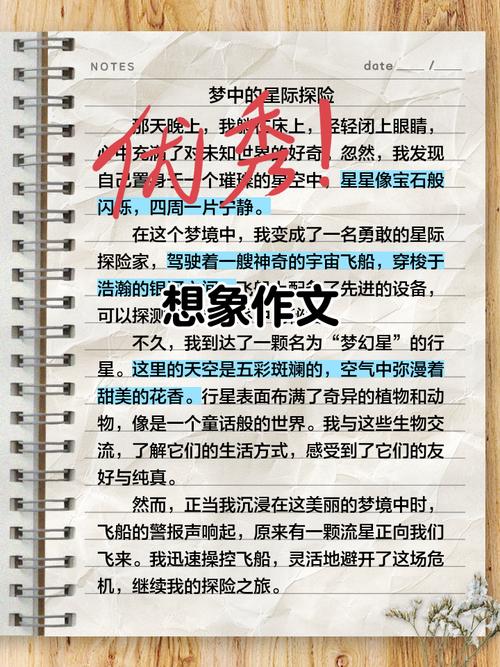 NOTES
date ____ / ____
梦中的星际探险
那天晚上，我躺在床上，轻轻闭上眼睛，
心中充满了对未知世界的好奇。忽然，我发现
自己置身于一个璀璨的星空中，星星像宝石般
闪烁，四周一片宁静。
优秀！
在这个梦境中，我变成了一名勇敢的星际
探险家，驾驶着一艘神奇的宇宙飞船，穿梭于
浩瀚的银河之间。飞船上配备了先进的设备，
可以探测
想象作文
不久，我到达了一颗名为“梦幻星”的行
星。这里的天空是五彩斑斓的，空气中弥漫着
甜美的花香。行星表面布满了奇异的植物和动
物，像是一个童话般的世界。我与这些生物交
流，了解它们的生活方式，感受到了它们的友
好与纯真。
然而，正当我沉浸在这美丽的梦境中时，
飞船的警报声响起，原来有一颗流星正向我们
飞来。我迅速操控飞船，灵活地避开了这场危
机，继续我的探险之旅。